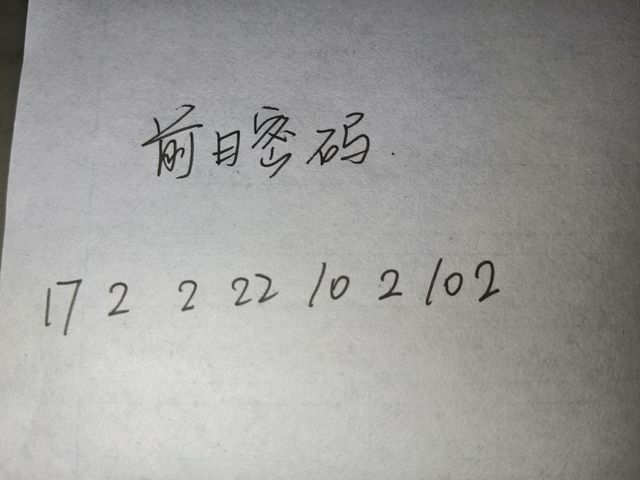 前日密码.
17 2 2 22 10 2 102